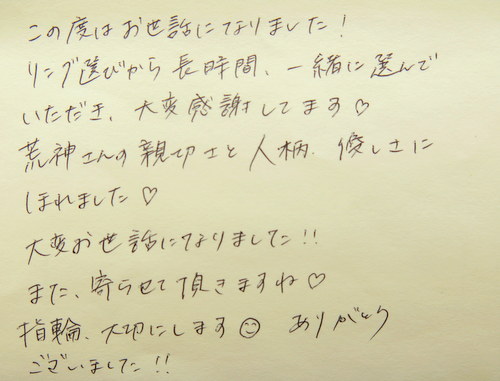 この度はお世話になりました!
リング選びから長時間、一緒に選んで
いただき、大変感謝してます♡
荒神さんの親切さと人柄、優しさに
ほれました♡
大変お世話になりました!!
また、寄らせて頂きますね♡
指輪、大切にします☺ ありがとう
ございました!!